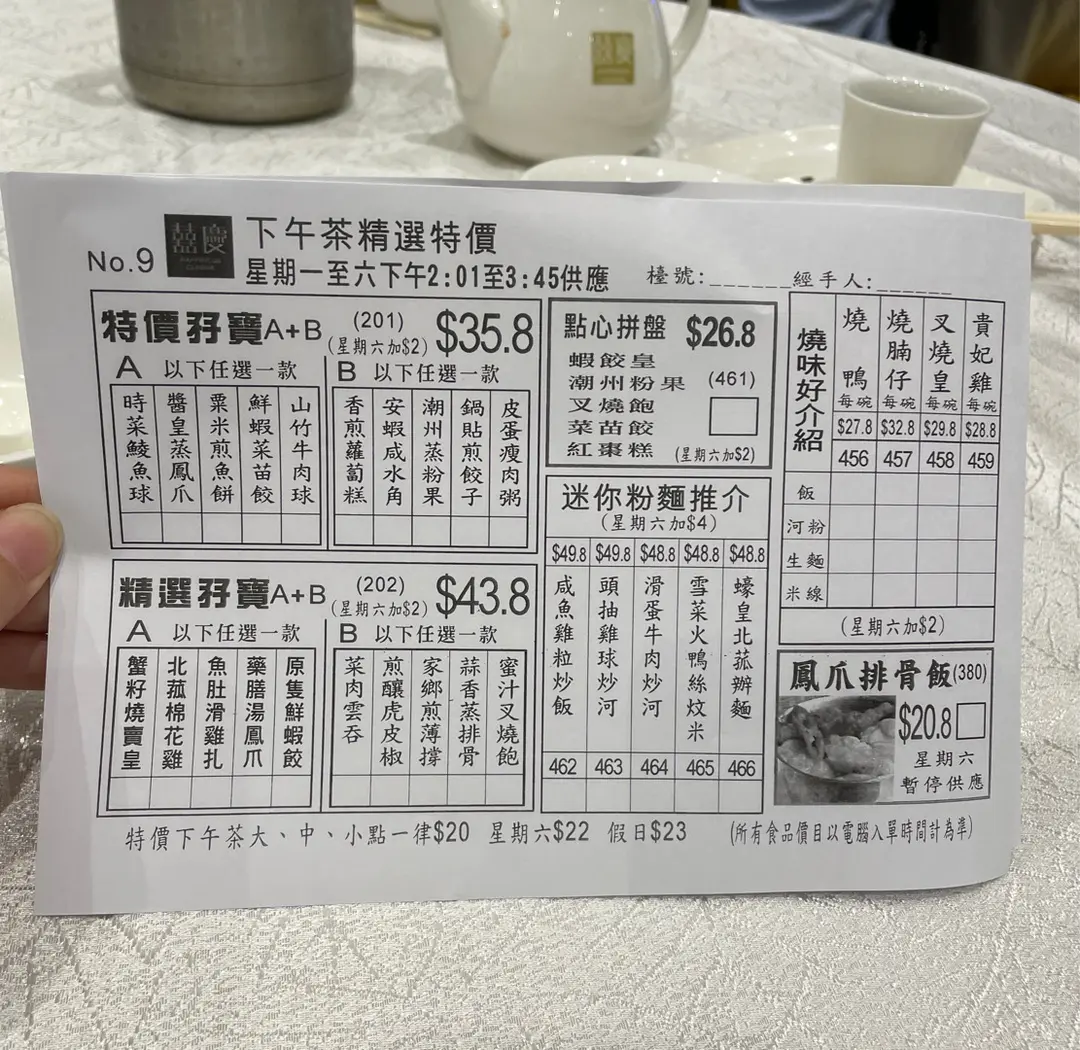 囍慶
No.9
囍慶
下午茶精選特價
星期一至六下午2:01至3:45供應
檯號:______
經手人:______
特價孖寶A+B
(201)
(星期六加$2)
$35.8
A 以下任選一款
時菜鯪魚球
醬皇蒸鳳爪
粟米煎魚餅
鮮蝦菜苗餃
山竹牛肉球
B 以下任選一款
香煎蘿蔔糕
安蝦咸水角
潮州蒸粉果
鍋貼煎餃子
皮蛋瘦肉粥
精選孖寶A+B
(202)
(星期六加$2)
$43.8
A 以下任選一款
蟹籽燒賣皇
北菰棉花雞
魚肚滑雞扎
藥膳湯鳳爪
原隻鮮蝦餃
B 以下任選一款
菜肉雲吞
煎釀虎皮椒
家鄉煎薄撐
蒜香蒸排骨
蜜汁叉燒飽
點心拼盤 $26.8
蝦餃皇
潮州粉果 (461)
叉燒飽
菜苗餃
紅棗糕 (星期六加$2)
迷你粉麵推介
(星期六加$4)
$49.8 $49.8 $48.8 $48.8 $48.8
咸魚雞粒炒飯
頭抽雞球炒河
滑蛋牛肉炒河
雪菜火鴨絲炆米
蠔皇北菰辦麵
462 463 464 465 466
燒味好介紹
燒鴨 每碗
燒腩仔 每碗
叉燒皇 每碗
貴妃雞 每碗
$27.8 $32.8 $29.8 $28.8
456 457 458 459
飯
河粉
生麵
米線
(星期六加$2)
鳳爪排骨飯(380)
$20.8
星期六
暫停供應
特價下午茶大、中、小點一律$20 星期六$22 假日$23 (所有食品價目以電腦入單時間計為準)